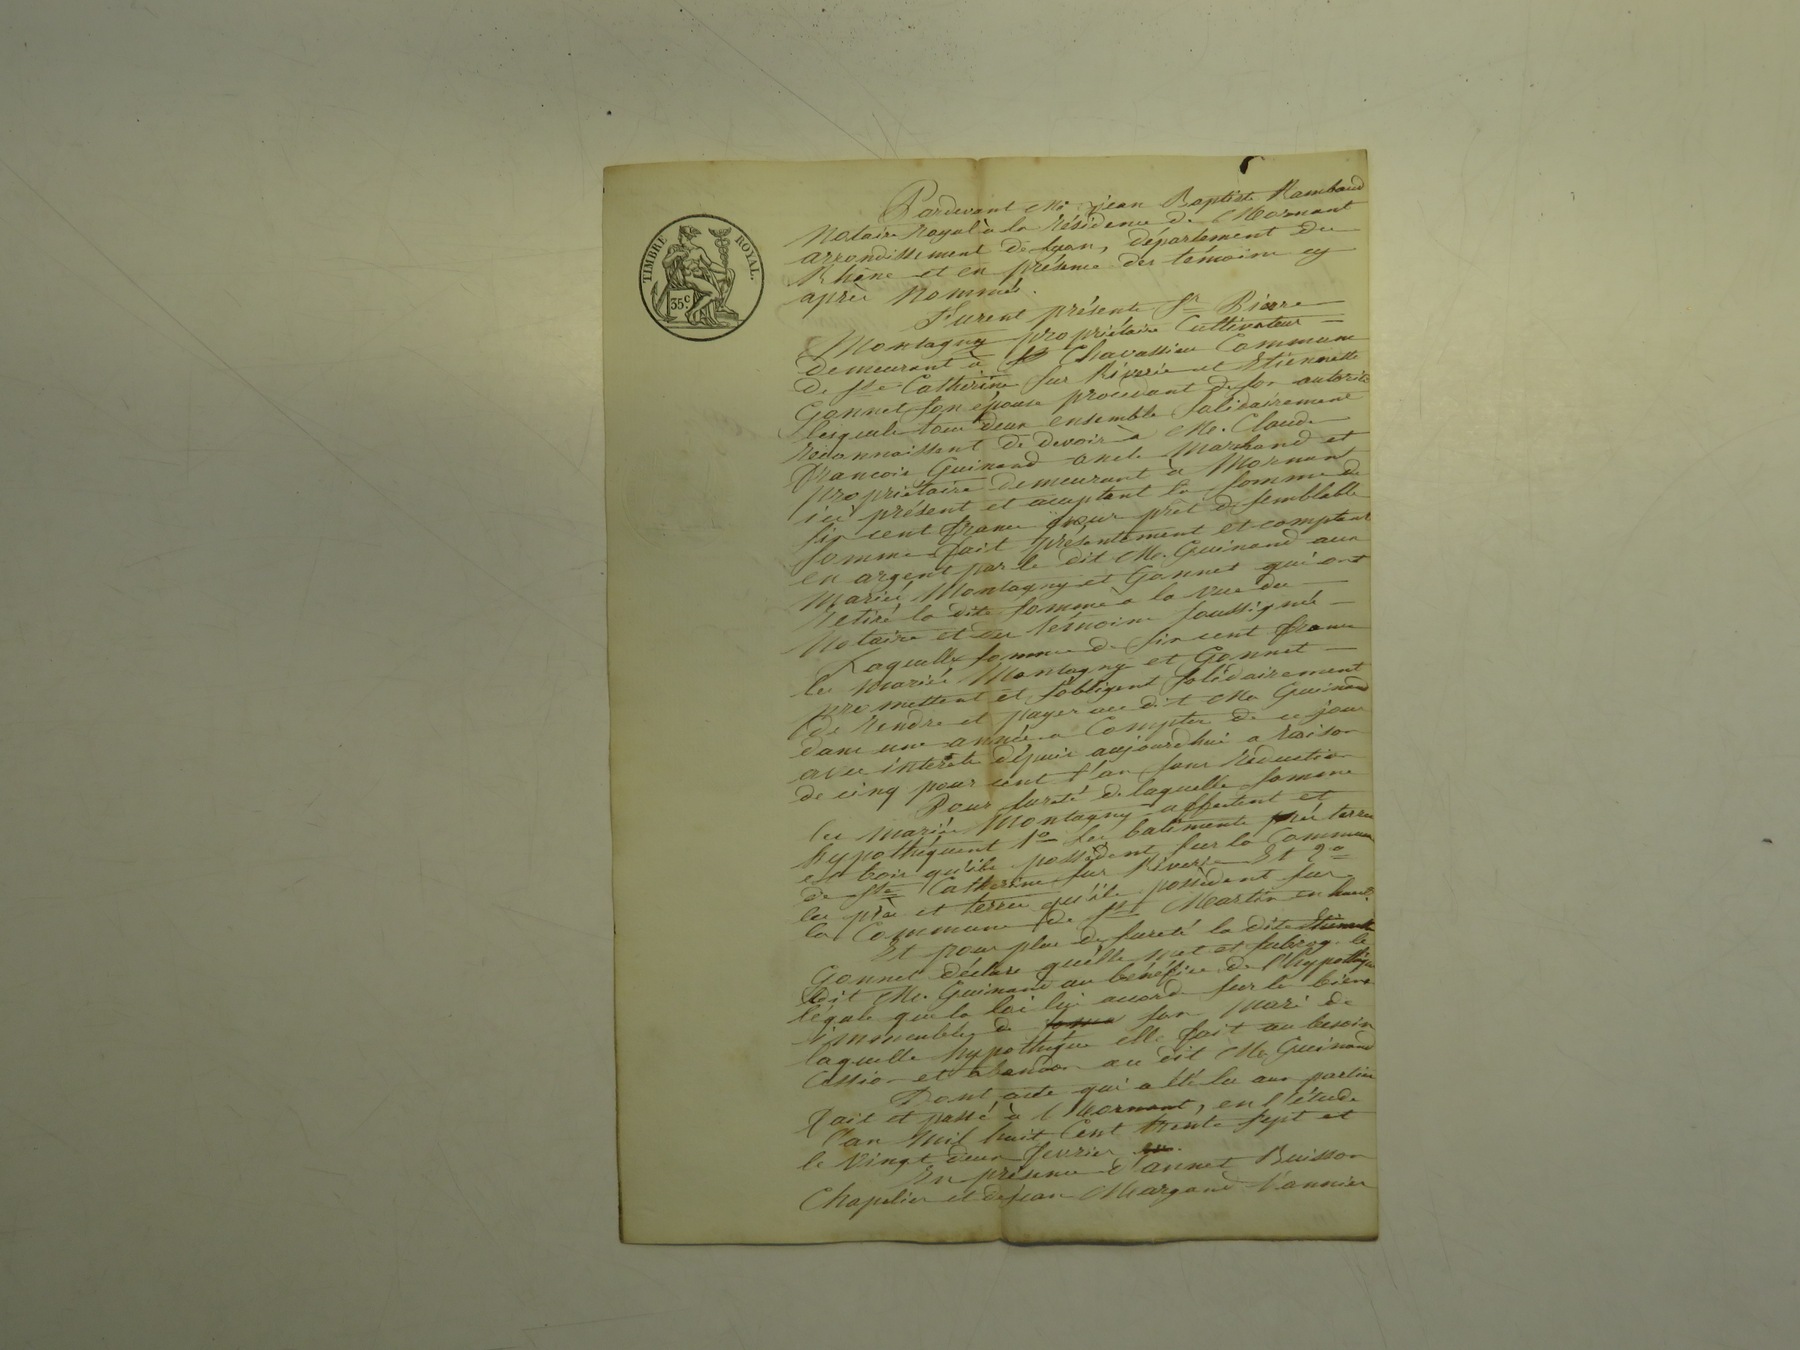 TIMBRE ROYAL.
35c
Pardevant Me jean Baptiste Rambaud
Notaire Royal à la Résidence de Mornant
arrondissement de Lyon, département du
Rhône et en présence des témoins cy
après Nommés.
Furent présents Sr Pierre
Montagny propriétaire Cultivateur
demeurant à Chavassieu Commune
de Ste Catherine sur Riverie et Etiennette
Gonnet son épouse procédant de son autorité
lesquels tous deux ensemble solidairement
reconnaissent de devoir à Mr. Claude
François Guinand ancn Marchand et
propriétaire demeurant à Mornant
ici présent et acceptant la somme de
six cent francs pour prêt de semblable
somme fait présentement et comptant
en argent par le dit Mr. Guinand aux
Mariés Montagny et Gonnet qui ont
Retiré la dite somme à la vue du
Notaire et des témoins soussignés
Laquelle somme de six cent francs
les Mariés Montagny et Gonnet
promettent et s'obligent solidairement
de Rendre et payer au dit Mr Guinand
dans une année a Compter de ce jour
avec intérêts dépuis aujourdhui a Raison
de cinq pour cent l'an sans Réduction
Pour sureté de laquelle somme
les Mariés Montagny affectent et
hypothéquent 1o les batiments prés terres
et bois qu'ils possèdent sur la Commune
de Ste Catherine sur Riverie Et 2o
les près et terres qu'ils possèdent sur
la Commune de St Martin en haut.
Et pour plus de sureté la dite Etiennette
Gonnet déclare quelle met et subroge le
dit Mr. Guinand au bénéfice de l'hypothèque
légale que la loi lui accorde sur les biens
immeubles de son Mari de
laquelle hypothèque elle fait au besoin
Cession et abandon au dit Mr. Guinand
Dont acte qui a été lu aux parties
fait et passé à Mornant, en l'étude
l'an Mil huit Cent trente sept et
le Vingt deux fevrier
En présence d'annet Buisson
Chapelier et de jean Margand Vannier